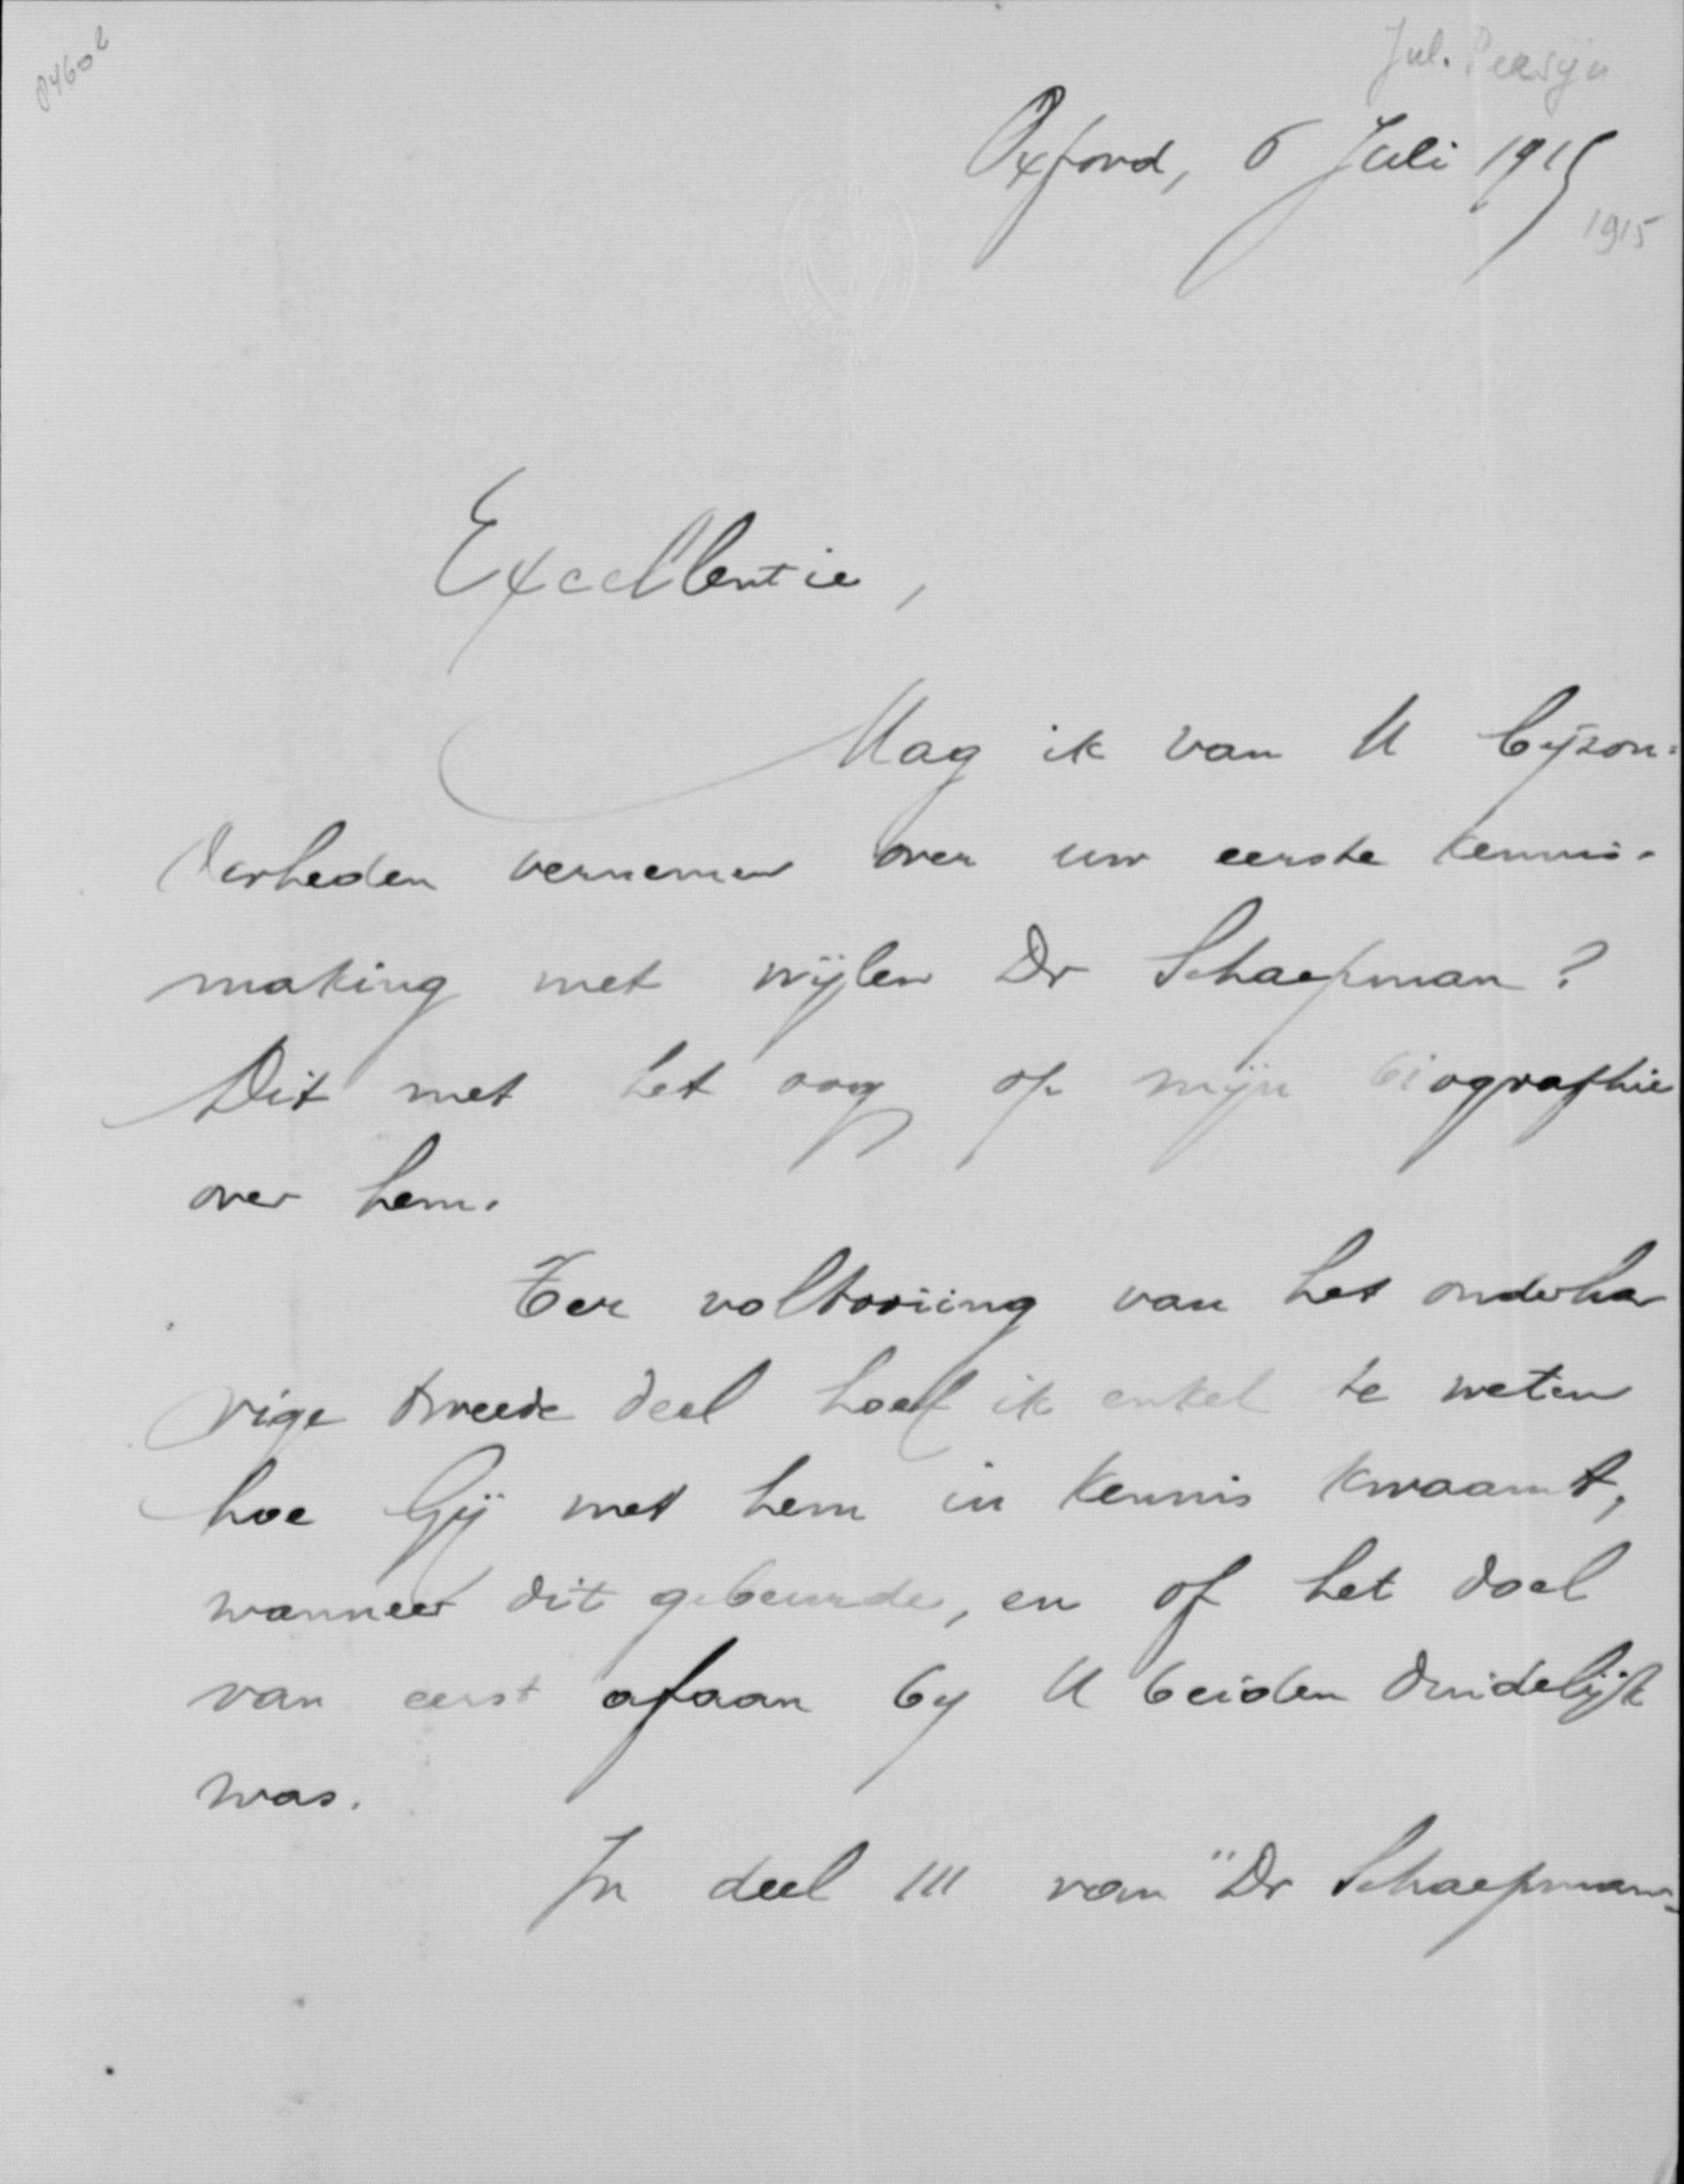 0460
Jul. Persyn
Oxford, 6 Juli 1915
1915
Excellentie,
Mag ik van U byzon=
derheden vernemen over uw eerste kennis-
making met wijlen Dr Schaepman?
Dit met het oog op mijn biographie
over hem.
Ter voltooiing van het onderha
vige tweede deel hoef ik enkel te weten
hoe Gij met hem in kennis kwaamt,
wanneer dit gebeurde, en of het doel
van eerst afaan by U beiden duidelijk
was.
In deel III van "Dr Schaepman"